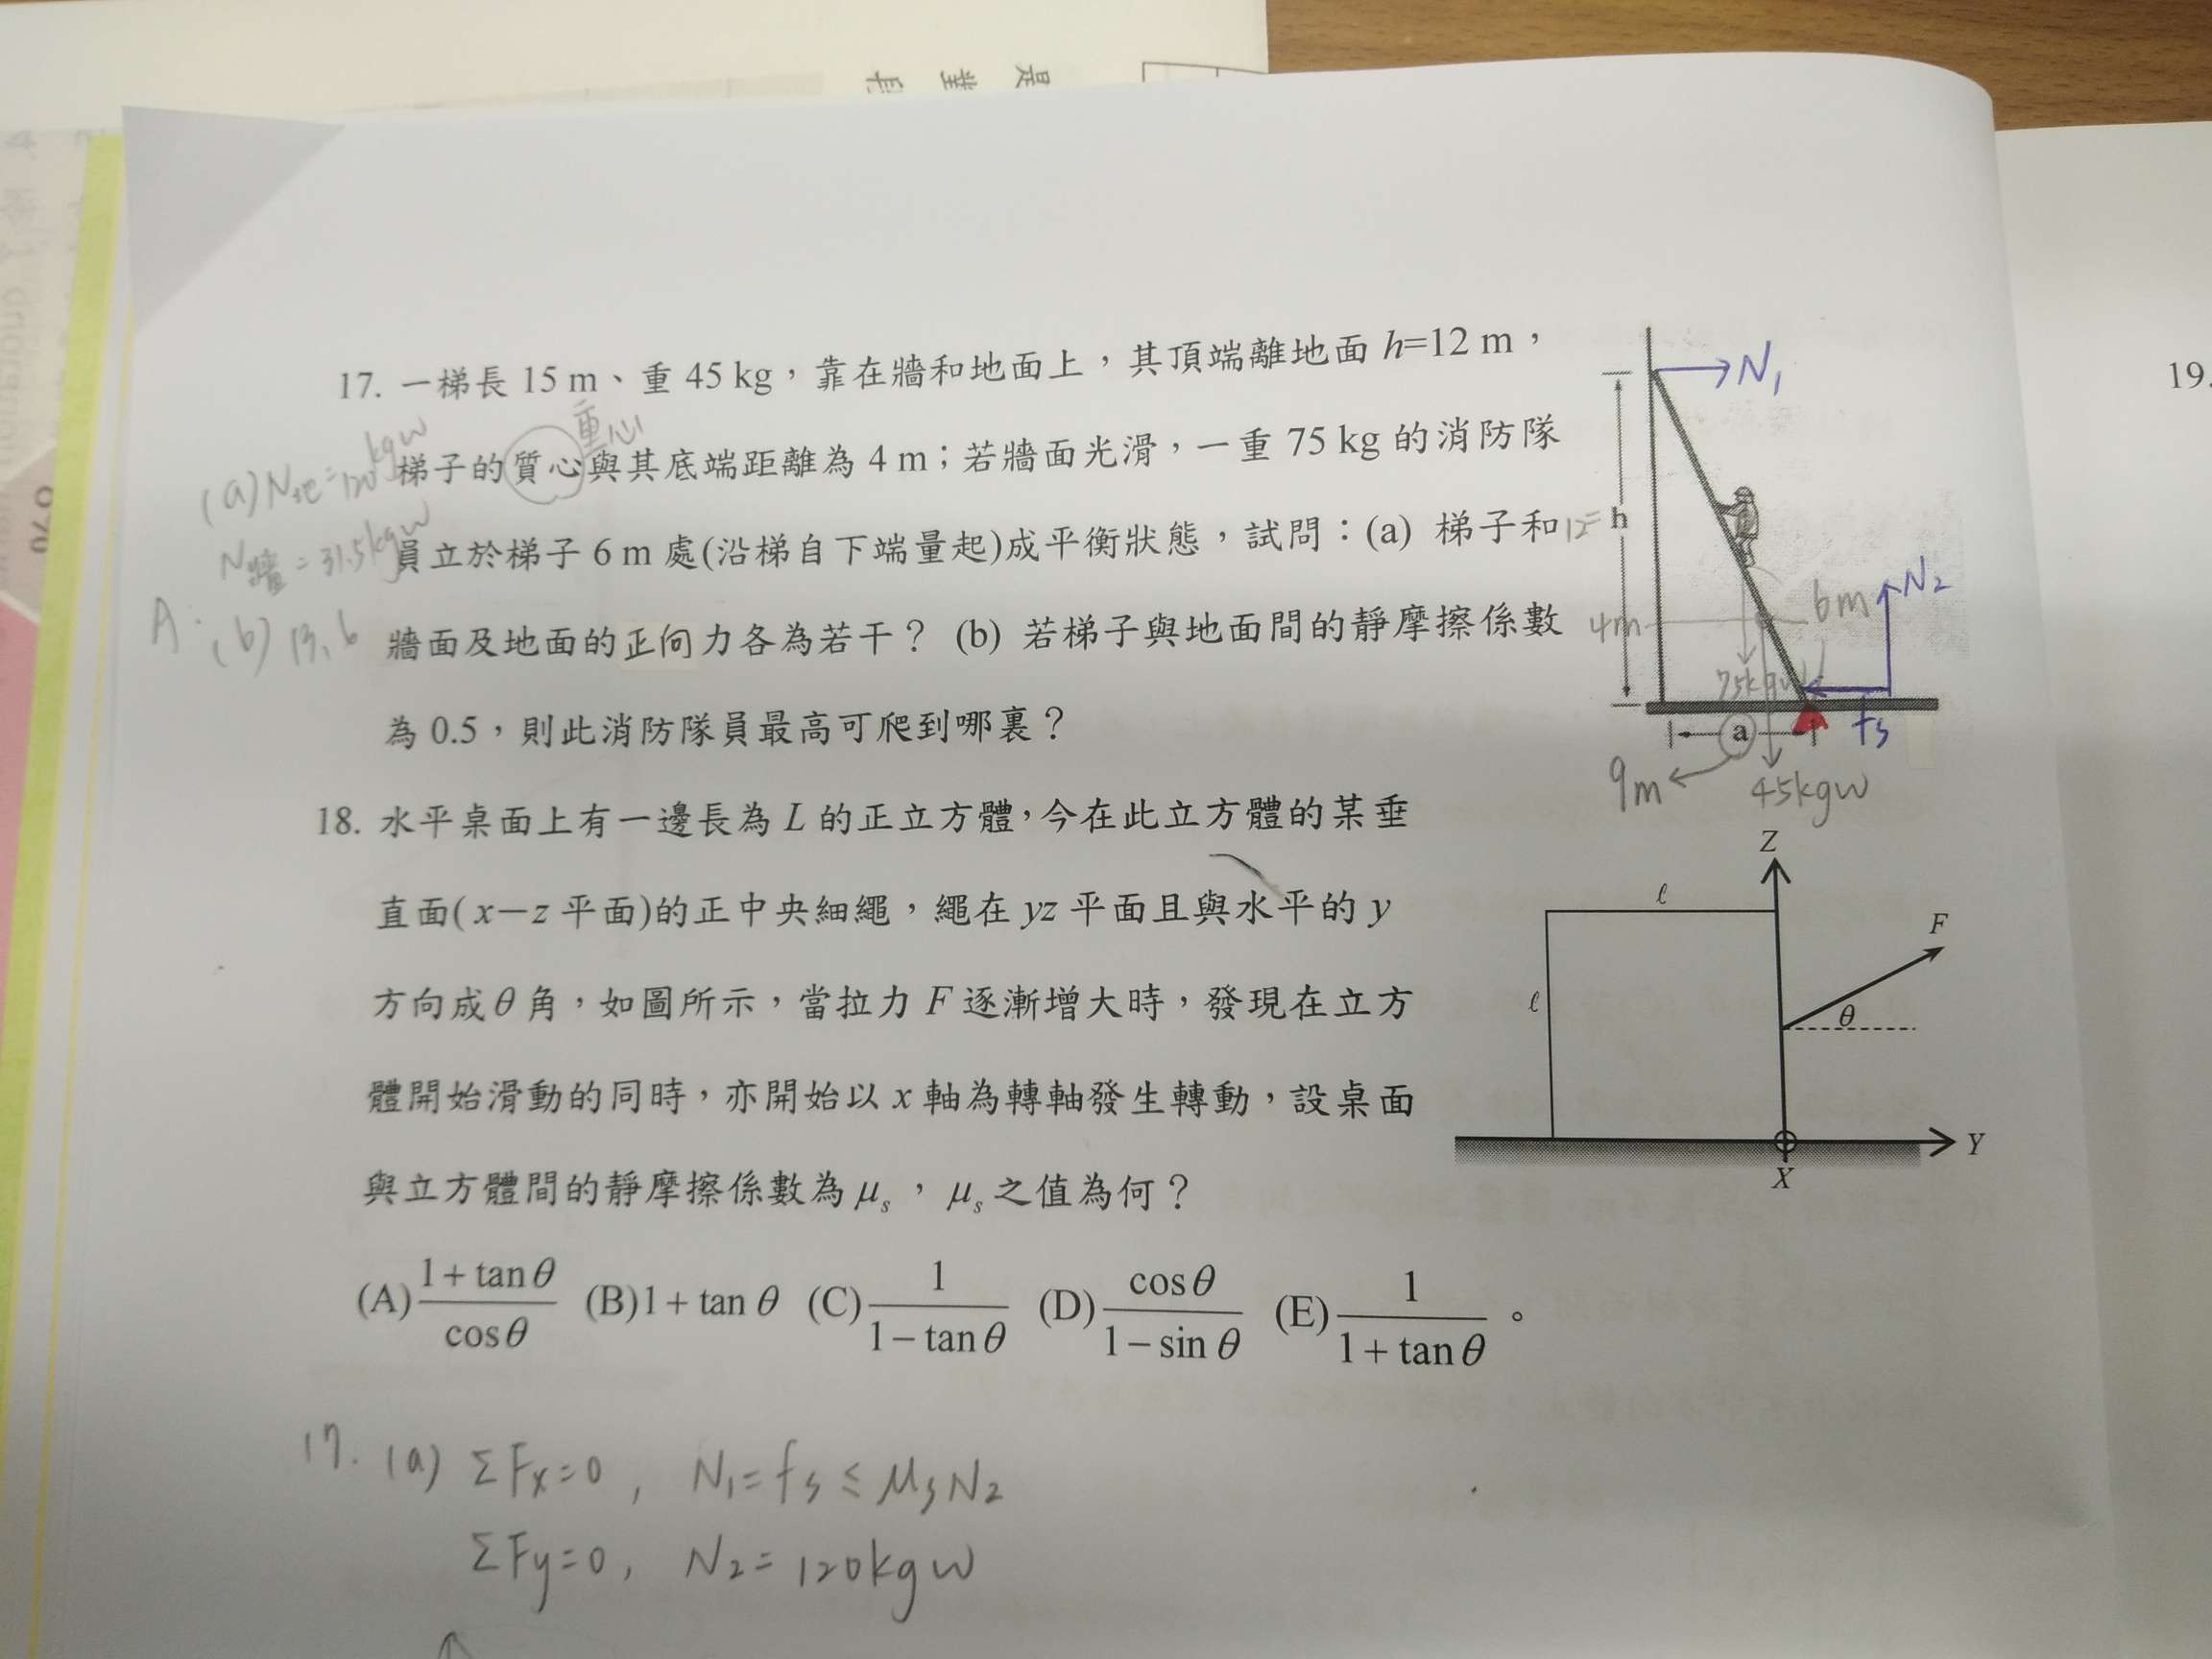 是 對 與
17. 一梯長 15 m、重 45 kg，靠在牆和地面上，其頂端離地面 h=12 m，
重心
梯子的質心與其底端距離為 4 m；若牆面光滑，一重 75 kg 的消防隊
員立於梯子 6 m 處(沿梯自下端量起)成平衡狀態，試問：(a) 梯子和
牆面及地面的正向力各為若干？ (b) 若梯子與地面間的靜摩擦係數
為 0.5，則此消防隊員最高可爬到哪裏？
(a) N地=120 kgw
N牆=31.5kgw
A:
(b) 13.6
N1
12=h
4m
6m
N2
75kgw
fs
a
9m
45kgw
19.
18. 水平桌面上有一邊長為 L 的正立方體，今在此立方體的某垂
直面( x－z 平面)的正中央細繩，繩在 yz 平面且與水平的 y
方向成θ角，如圖所示，當拉力 F 逐漸增大時，發現在立方
體開始滑動的同時，亦開始以 x 軸為轉軸發生轉動，設桌面
與立方體間的靜摩擦係數為μs，μs之值為何？
Z
ℓ
F
ℓ
θ
Y
X
(A) (1+tanθ)/(cosθ) (B)1+tanθ (C) 1/(1−tanθ) (D) cosθ/(1−sinθ) (E) 1/(1+tanθ) 。
17. (a) ΣFx=0, N1=fs≤μsN2
ΣFy=0, N2=120kgw